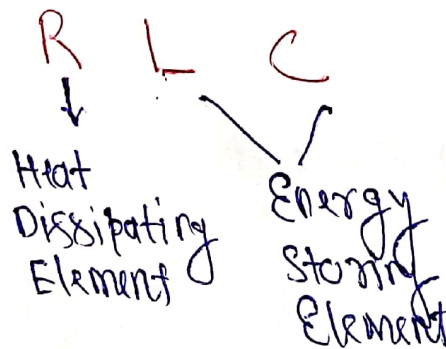 R L C
Heat
Dissipating
Element
Energy
Storing
Element